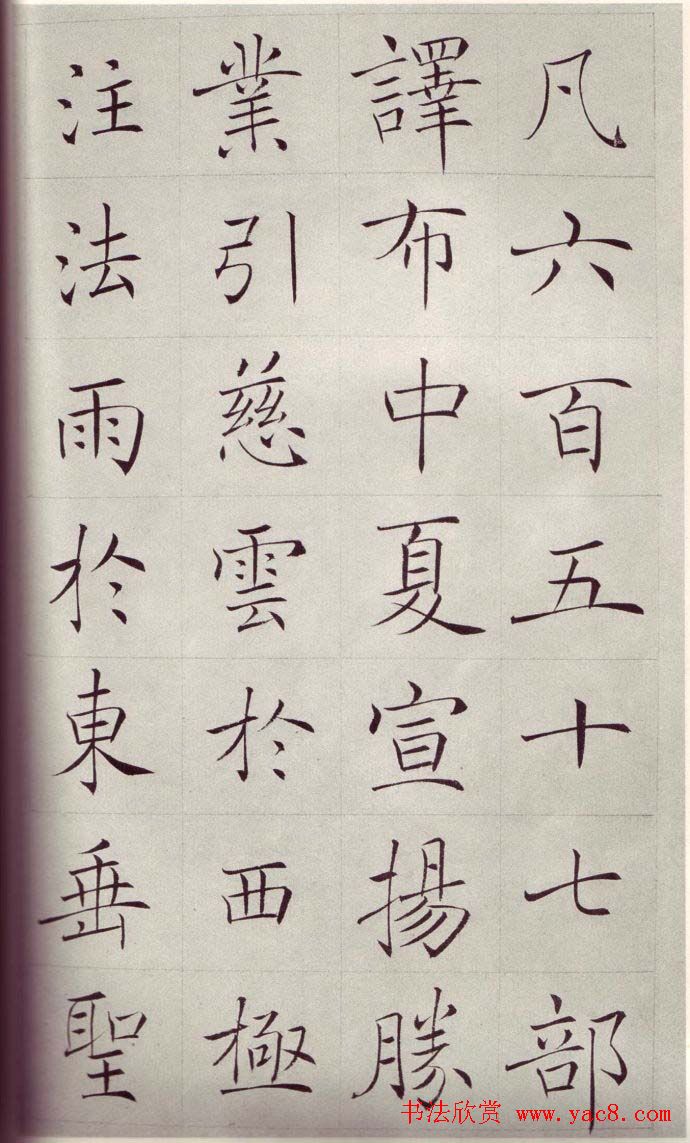 凡六百五十七部
譯布中夏宣揚勝
業引慈雲於西極
注法雨於東垂聖
书法欣赏 www.yac8.com